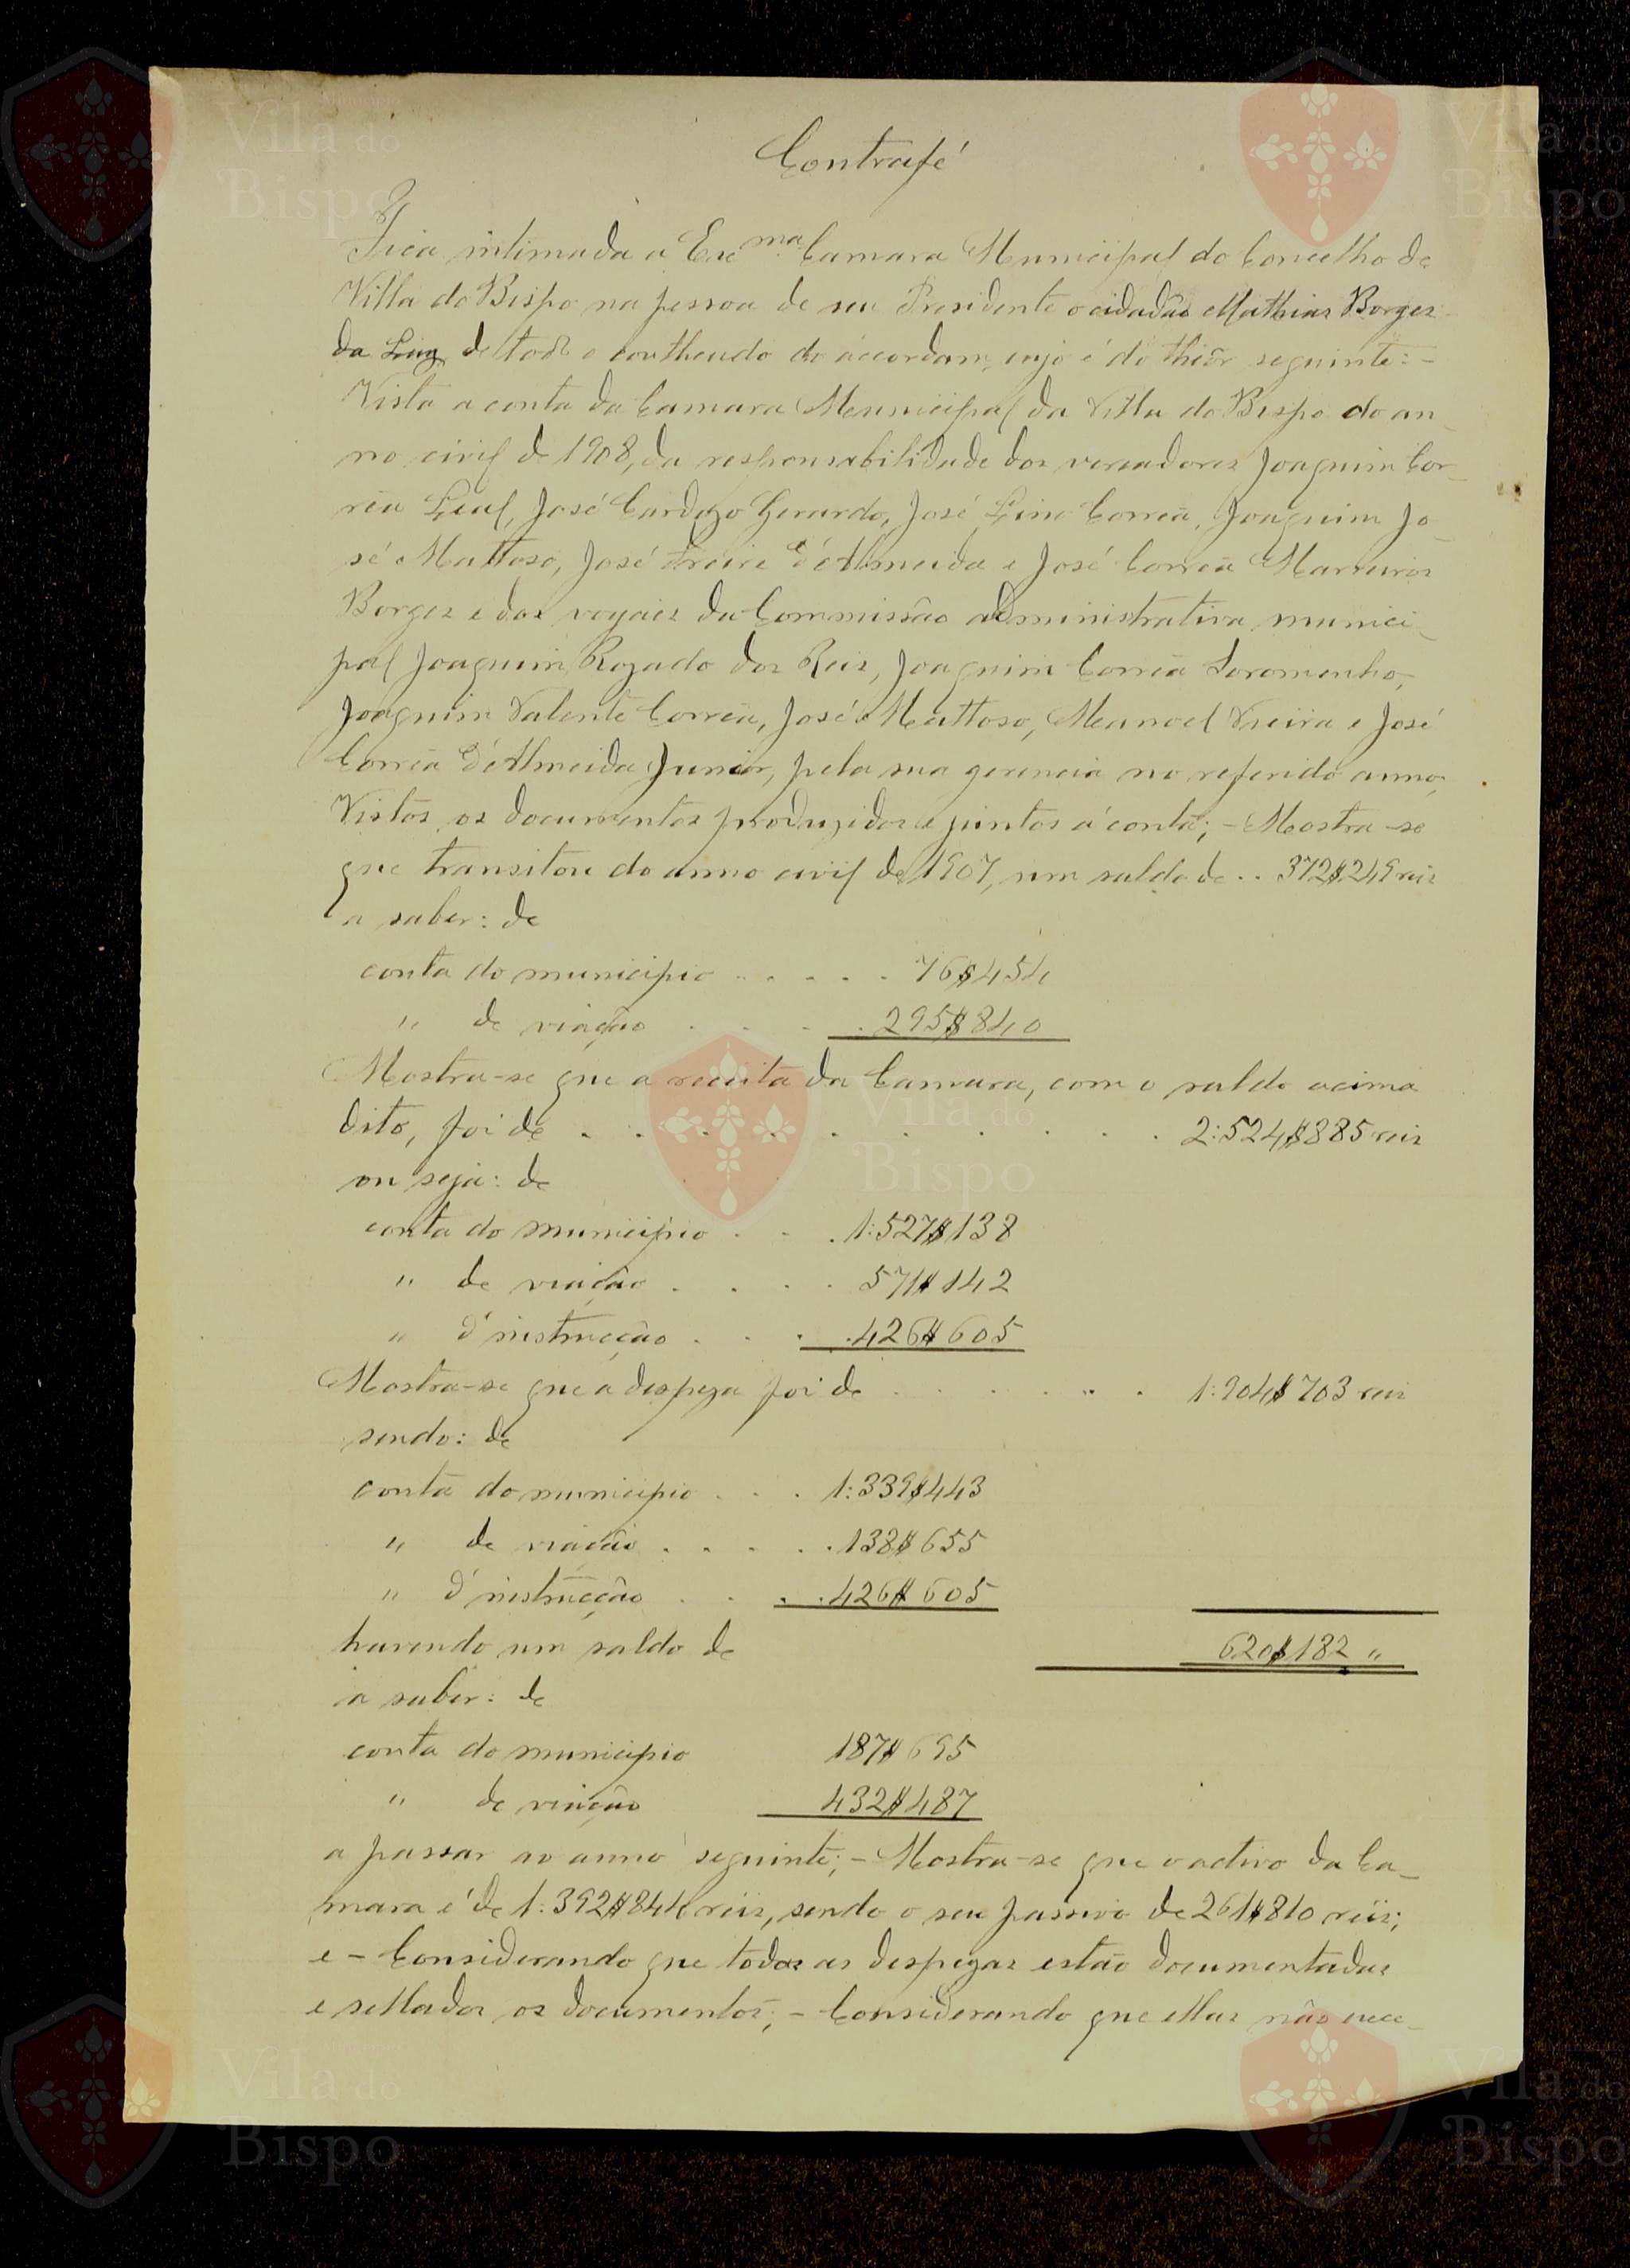 Contrafé
Fica intimada a Exc.ma Camara Municipal do Concelho de
Villa do Bispo na pessoa de seu Presidente o cidadão Mathias Borges
da Luz de todo o contheudo do accordam, cujo é do theôr seguinte: -
Vista a conta da Camara Municipal da Villa do Bispo do an-
no civil de 1908, da responsabilidade dos vereadores Joaquim Cor-
rêa Leal, José Cardozo Gerardo, José Lino Corrêa, Joaquim Jo-
sé Mattoso, José Freire d'Almeida e José Corrêa Marreiros
Borges e dos vogaes da Commissão administrativa munici-
pal Joaquim Rozado dos Reis, Joaquim Corrêa Soromenho,
Joaquim Valente Corrêa, José Mattoso, Manoel Vieira e José
Corrêa d'Almeida Junior, pela sua gerencia no referido anno;
Vistos os documentos produzidos e juntos á conta; - Mostra-se
que transitou do anno civil de 1907, um saldo de .. 372$249 reis
a saber: de
conta do municipio . . . . . 76$454
" de viação . . . . 295$840
Mostra-se que a receita da Camara, com o saldo acima
dito, foi de . . . . . . . . . 2:524$885 reis
ou seja: de
conta do municipio . . . 1:527$138
" de viação . . . . 571$142
" d'instrucção . . . 426$605
Mostra-se que a despeza foi de . . . . . . 1:904$703 reis
sendo: de
conta do municipio . . . 1:339$443
" de viação . . . . . 138$655
" d'instrucção . . . . 426$605
havendo um saldo de 620$182 "
a saber: de
conta do municipio 187$695
" de viação 432$487
a passar ao anno seguinte; - Mostra-se que o activo da Ca-
mara é de 1:392$844 reis, sendo o seu passivo de 261$810 reis;
e - Considerando que todas as despezas estão documentadas
e sellados os documentos; - Considerando que ellas não exce-
Vila do
Bispo
Vila do
Bispo
Vila do
Bispo
Vila do
Bispo
Vila do
Bispo